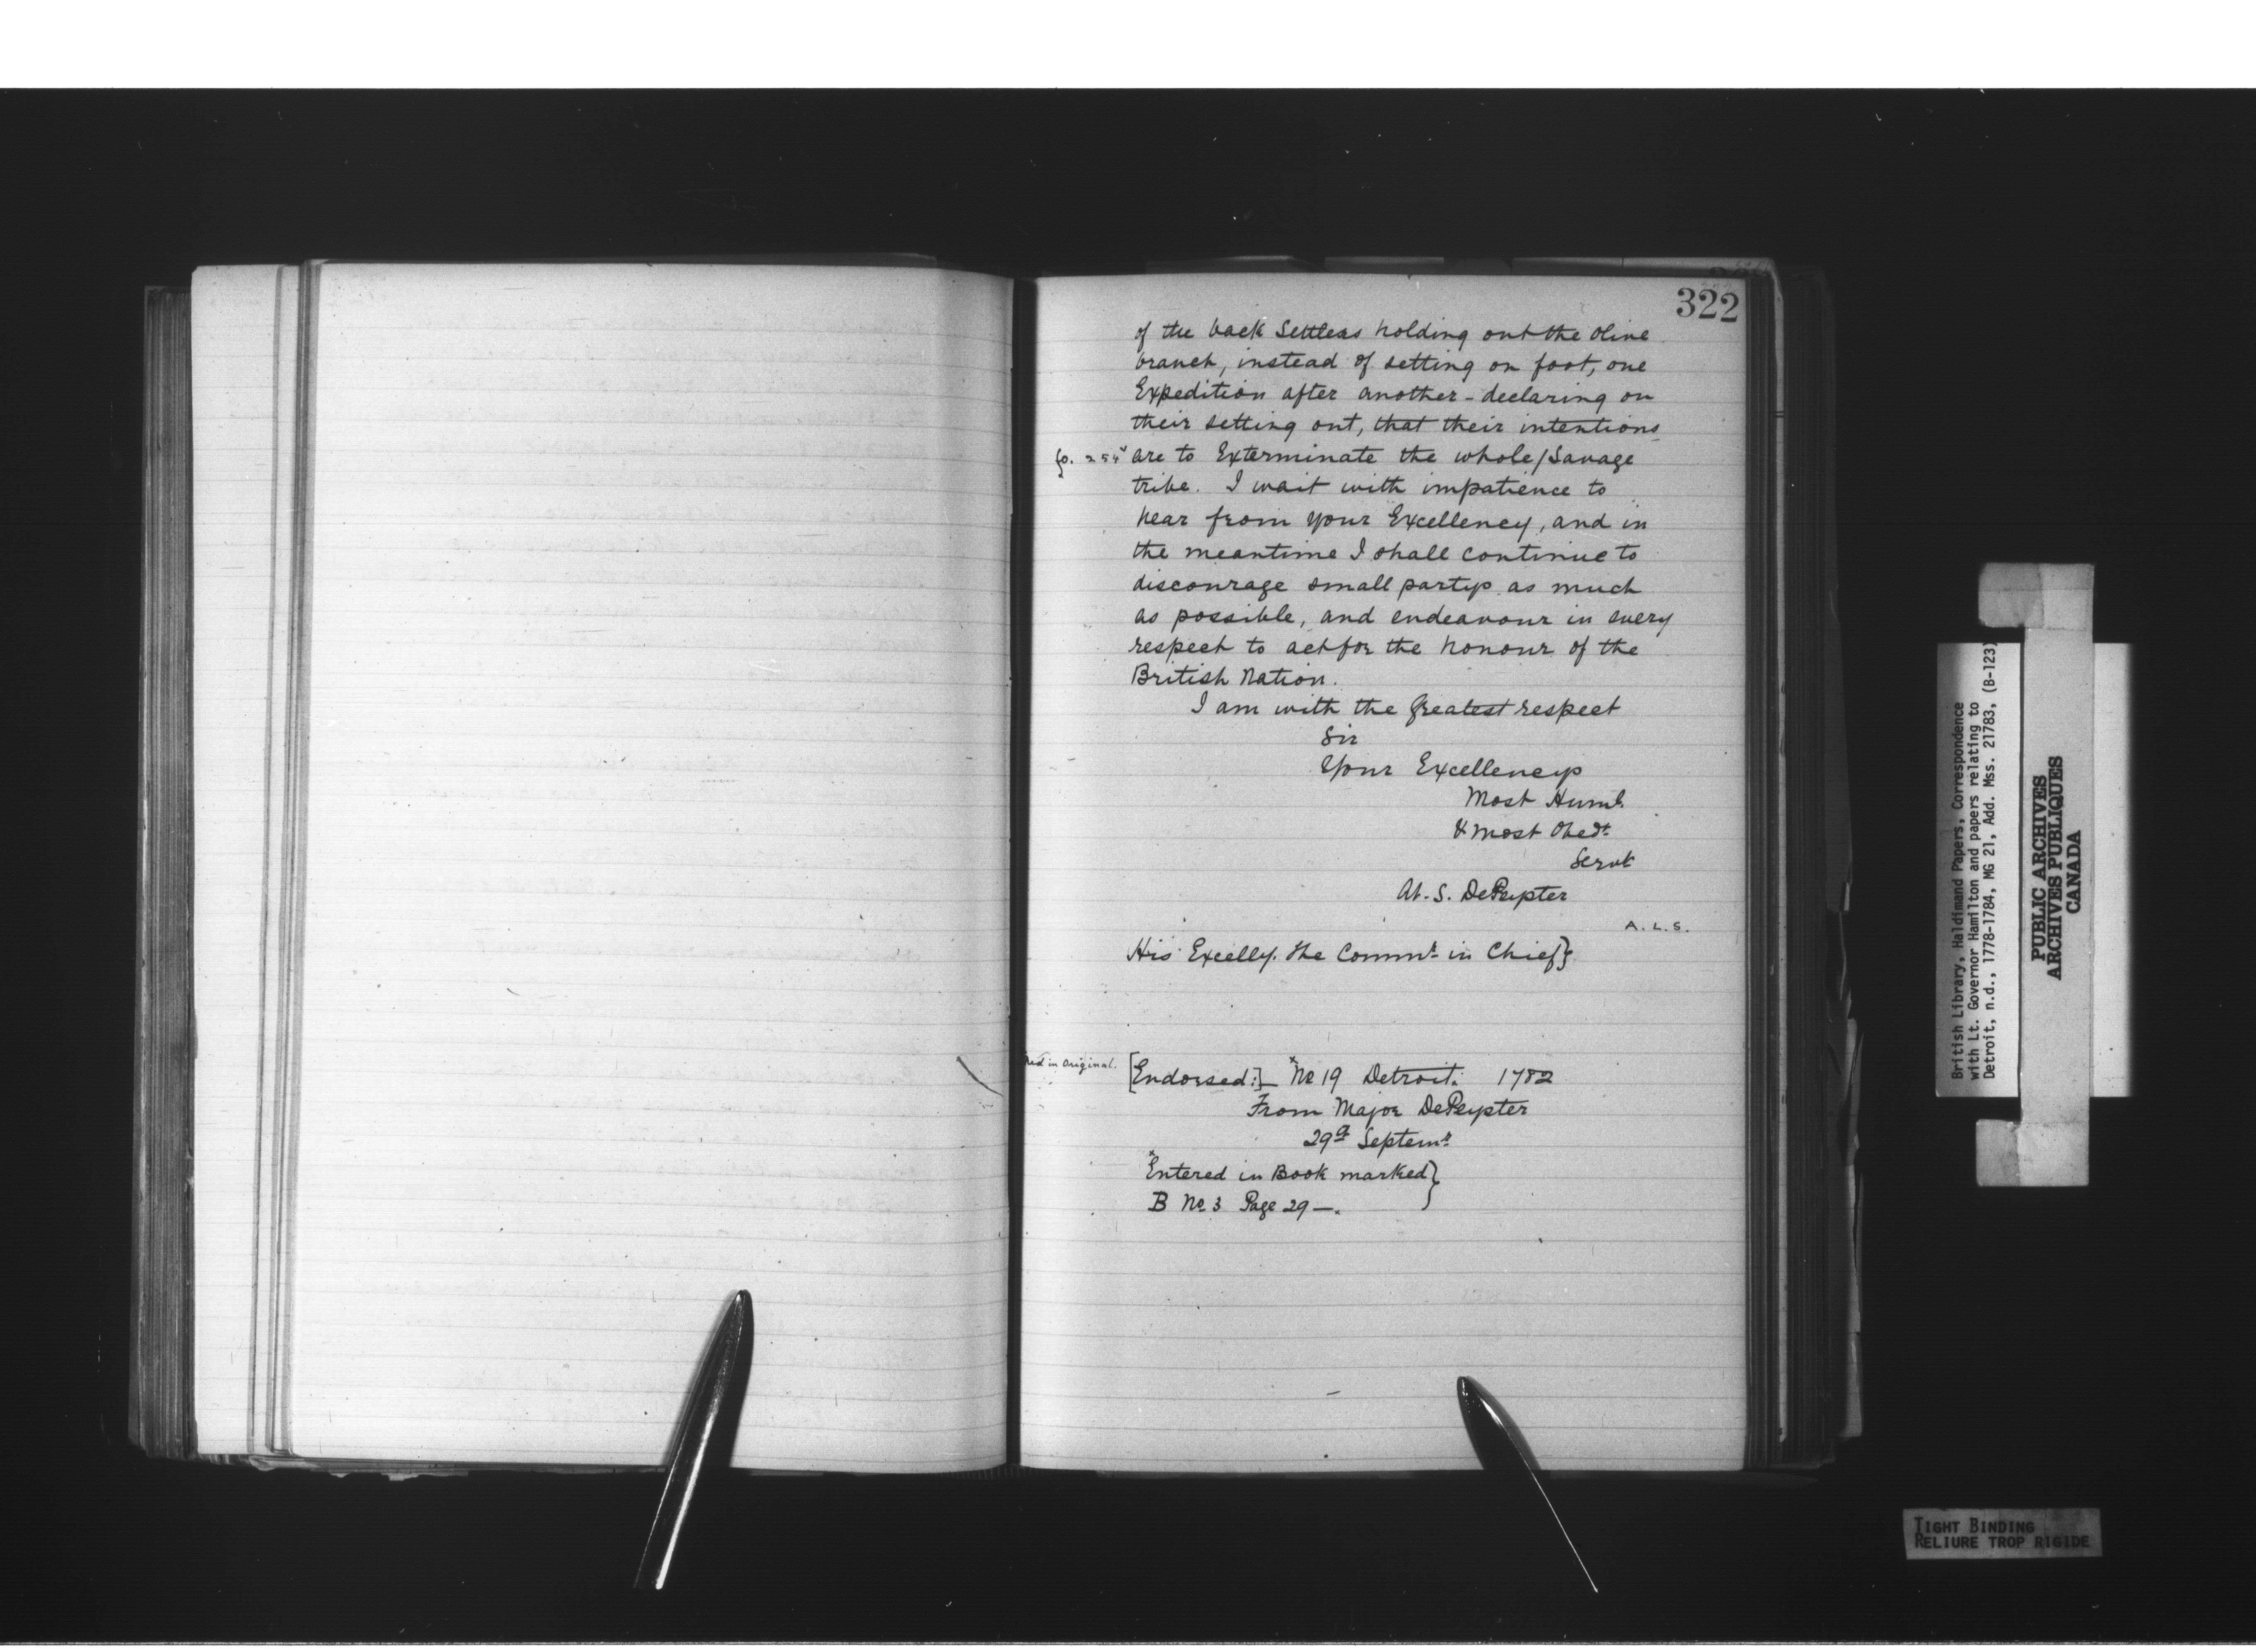 322
of the back Settlers holding out the Olive
branch, instead of setting on foot, one
Expedition after another - declaring on
their setting out, that their intentions
fo. 254v are to Exterminate the whole/Savage
tribe. I wait with impatience to
hear from your Excellency, and in
the meantime I shall continue to
discourage small partys as much
as possible, and endeavour in every
respect to act for the honour of the
British Nation.
I am with the greatest respect
Sir
Your Excellencys
Most Huml.
& most Obedt.
Servt
At. S. DePeyster
A. L. S.
His Excelly. the Commr. in Chief}
red in original. [Endorsed:] - *No 19 Detroit. 1782
From Major DePeyster
29th Septemr.
*Entered in Book marked}
B No. 3 Page 29 -.
British Library, Haldimand Papers, Correspondence
with Lt. Governor Hamilton and papers relating to
Detroit, n.d., 1778-1784, MG 21, Add. Mss. 21783, (B-123)
PUBLIC ARCHIVES
ARCHIVES PUBLIQUES
CANADA
TIGHT BINDING
RELIURE TROP RIGIDE